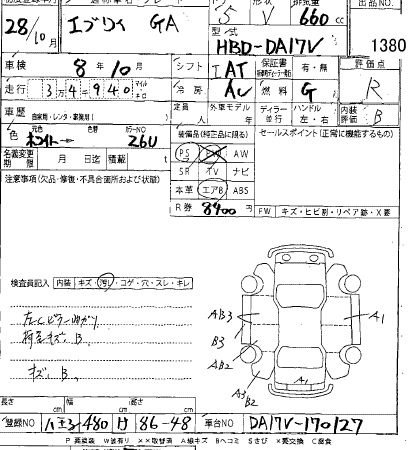 28/10月 エブリイ GA 5 V 660 cc
型式 HBD-DA17V 1380
車検 8年10月 シフト I AT 保証書 有・無 評価点
走行 3万4千940 マイル キロ 冷房 AC 燃料 G R
車歴 自家用・レンタ・事業用( ) 定員 人 外車モデル 年 ディーラー 並行 ハンドル 左・右 内装評価 B
色 元色 ホワイト 色替 カラーNO 26U 装備品(純正品に限る) セールスポイント(正常に機能するもの)
名義変更期限 月 日迄 積載 t PS PW AW
注意事項(欠品・修復・不具合箇所および状態) SR TV ナビ
本革 エアB ABS
R券 8400 円 FW キズ・ヒビ割・リペア跡・X要
検査員記入 内装 キズ・汚レ・コゲ・穴・スレ・キレ
キズ、B、
AB3 B3 AB2 A3 B2 A1 A1
長さ cm 幅 cm 高さ cm
登録NO 八王子 480 け 86-48 車台NO DA17V-170127
P 要塗装 W 波有り ××取替済 A 線キズ Bヘコミ Sさび ×要交換 C腐食